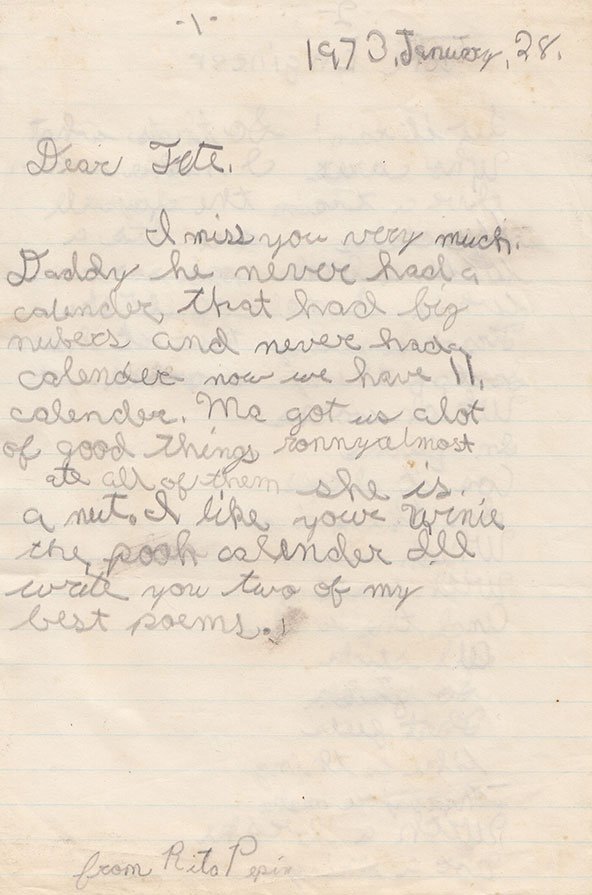 -1-
1973, January, 28.
Dear Tete.
I miss you very much.
Daddy he never had a
calender that had big
nubers and never had a
calender now we have 11.
calender. Ma got us alot
of good things ronny almost
ate all of them she is.
a nut. I like your Winie
the pooh calender Ill
write you two of my
best poems.
from Rita Pepin